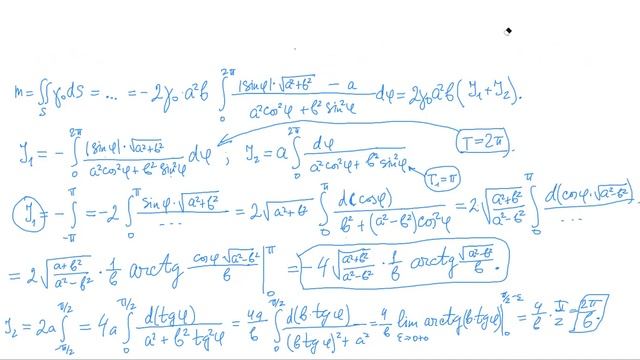 m = ∬_S γ₀ dS = ... = -2γ₀·a²b ∫₀^{2π} (|sinφ|·√(a²+b²) - a)/(a²cos²φ + b²sin²φ) dφ = 2γ₀a²b(J₁ + J₂).
J₁ = -∫₀^{2π} (|sinφ|·√(a²+b²))/(a²cos²φ + b²sin²φ) dφ ; J₂ = a∫₀^{2π} dφ/(a²cos²φ + b²sin²φ) T = 2π. T₁ = π
J₁ = -∫_{-π}^{π} = -2∫₀^{π} (sinφ·√(a²+b²))/... = 2√(a²+b²) ∫₀^{π} d(cosφ)/(b² + (a²-b²)cos²φ) = 2√((a²+b²)/(a²-b²)) ∫₀^{π} d(cosφ·√(a²-b²))/...
= 2√((a²+b²)/(a²-b²))·(1/b) arctg (cosφ·√(a²-b²))/b |₀^{π} = -4√((a²+b²)/(a²-b²))·(1/b) arctg (√(a²-b²))/b.
J₂ = 2a∫_{-π/2}^{π/2} = 4a∫₀^{π/2} d(tgφ)/(a² + b²tg²φ) = (4a/b) ∫₀^{π/2} d(b·tgφ)/((b tgφ)² + a²) = (4/b) lim_{ε→0+0} arctg(b·tgφ)|₀^{π/2-ε} = (4/b)·(π/2) = 2π/b.